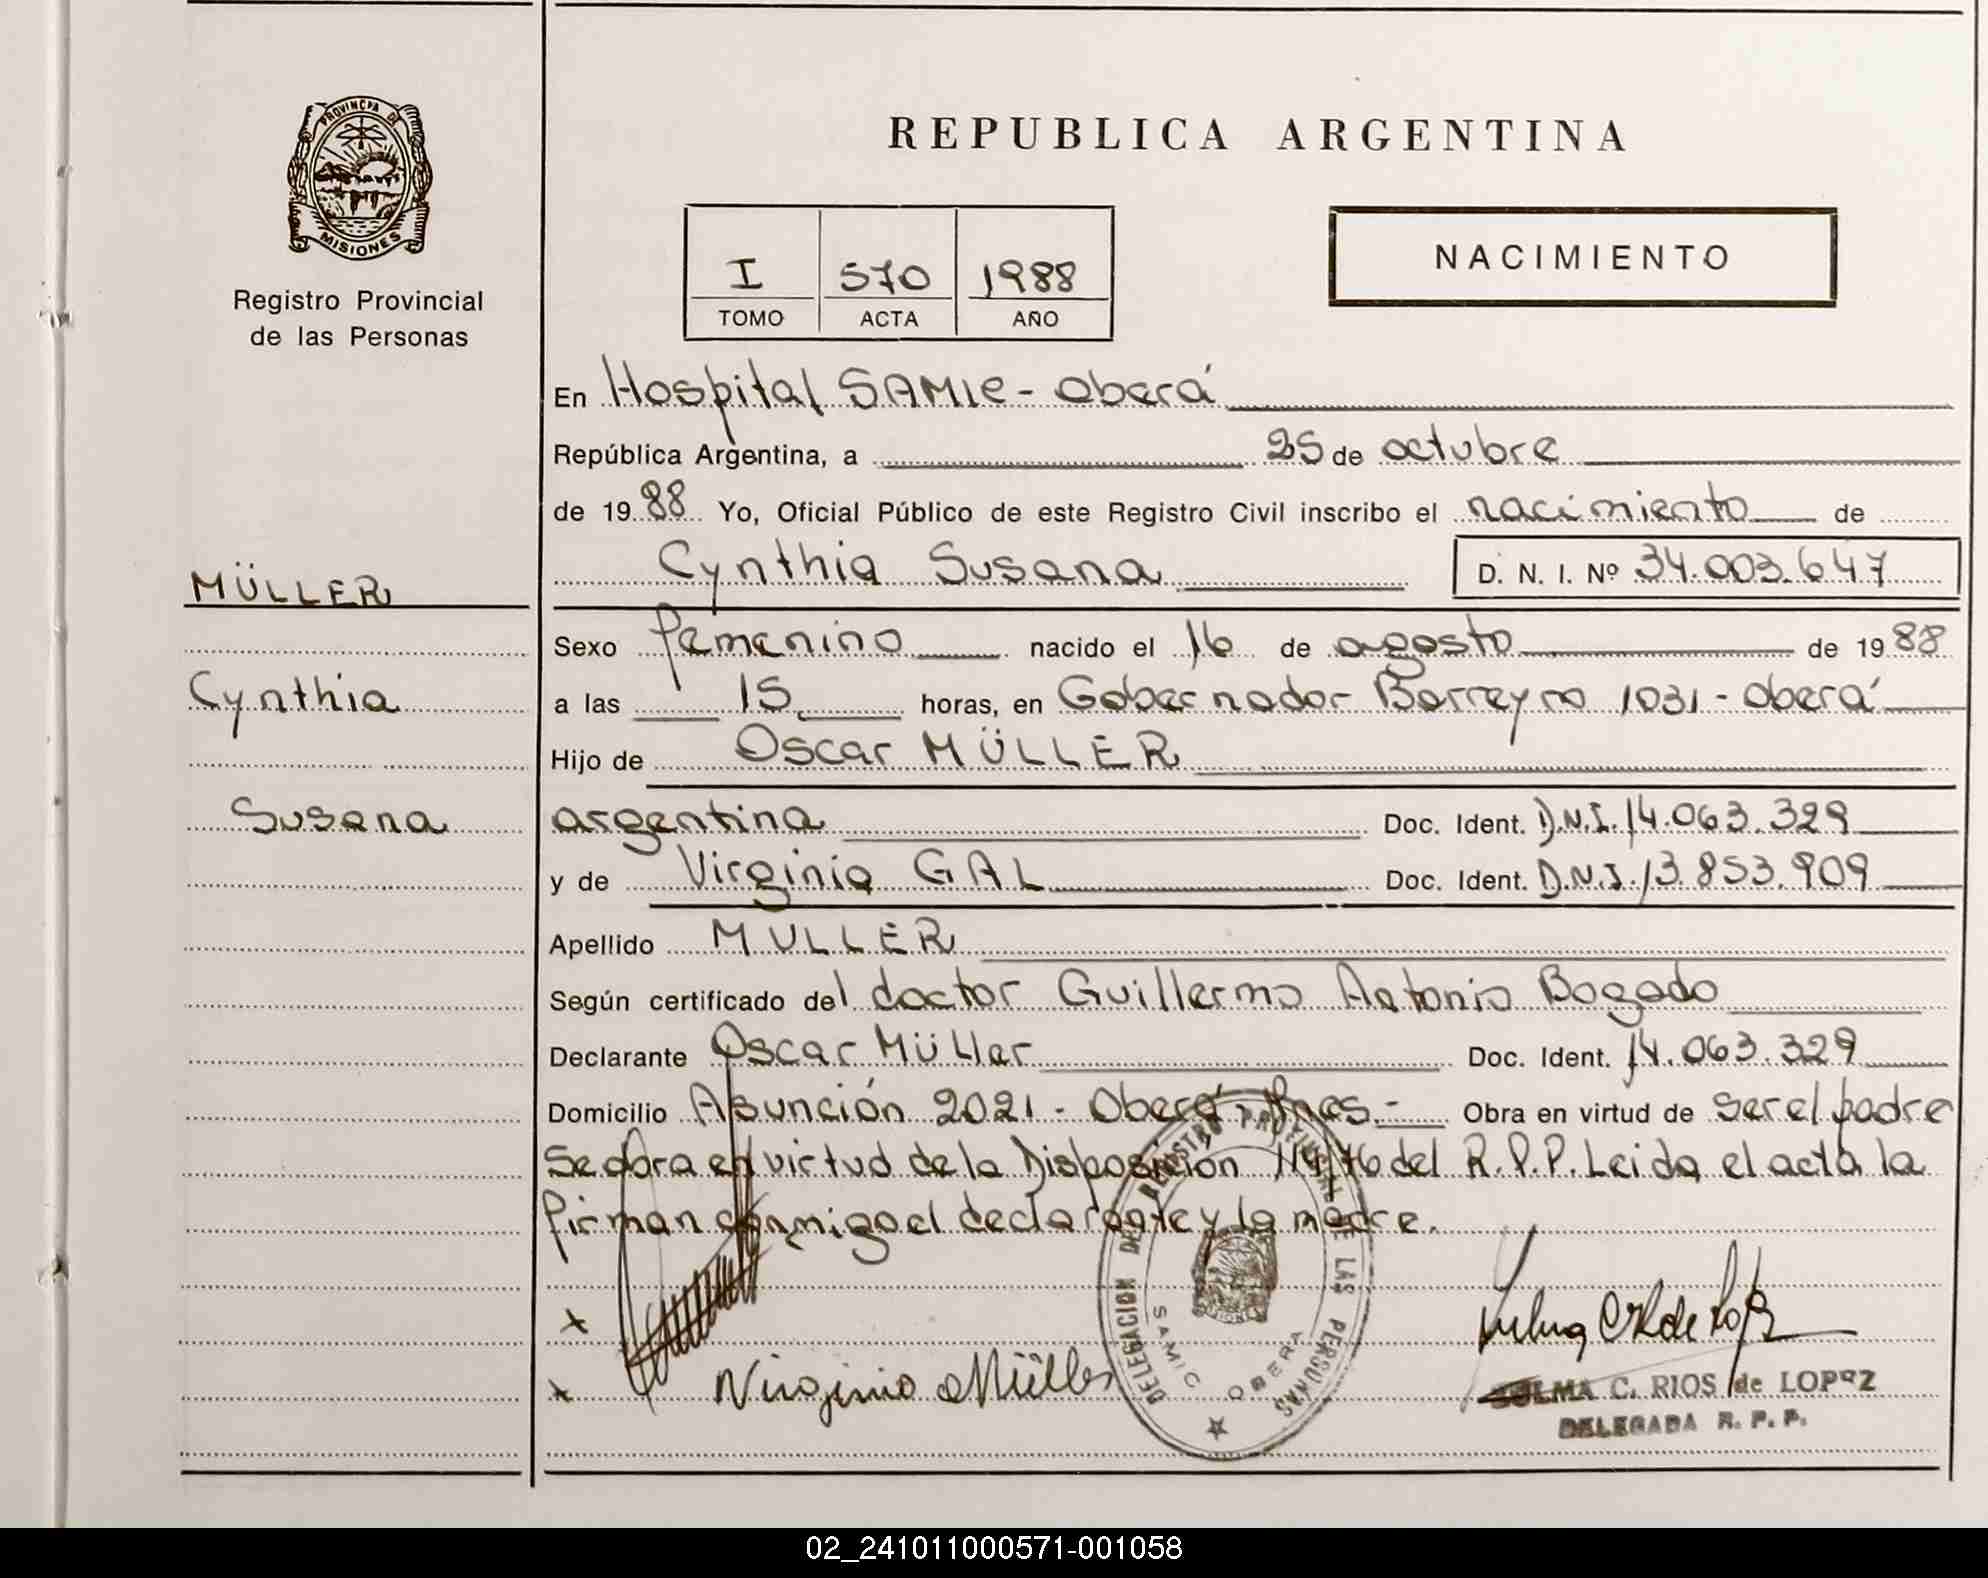 PROVINCIA DE
MISIONES
Registro Provincial
de las Personas
MÜLLER
Cynthia
Susana
REPUBLICA ARGENTINA
I 570 1988
TOMO ACTA AÑO
NACIMIENTO
En Hospital SAMIC - Oberá
República Argentina, a 25 de octubre
de 1988 Yo, Oficial Público de este Registro Civil inscribo el nacimiento de
Cynthia Susana D. N. I. Nº 34.003.647
Sexo femenino nacido el 16 de agosto de 1988
a las 15 horas, en Gobernador Barreyro 1031 - Oberá
Hijo de Oscar MÜLLER
argentina Doc. Ident. D.N.I. 14.063.329
y de Virginia GAL Doc. Ident. D.N.I. 13.853.909
Apellido MULLER
Según certificado del doctor Guillermo Antonio Bogado
Declarante Oscar Müller Doc. Ident. 14.063.329
Domicilio Asunción 2021 - Oberá, Mnes.- Obra en virtud de ser el padre
Se labra en virtud de la Disposición del R.P.P. Leida el acta la
firman conmigo el declarante y la madre.
x
x Virginia Müller
DELEGACION DEL REGISTRO PROVINCIAL DE LAS PERSONAS
SAMIC OBERA
C. RIOS de LOPEZ
DELEGADA R. P. P.
02_241011000571-001058